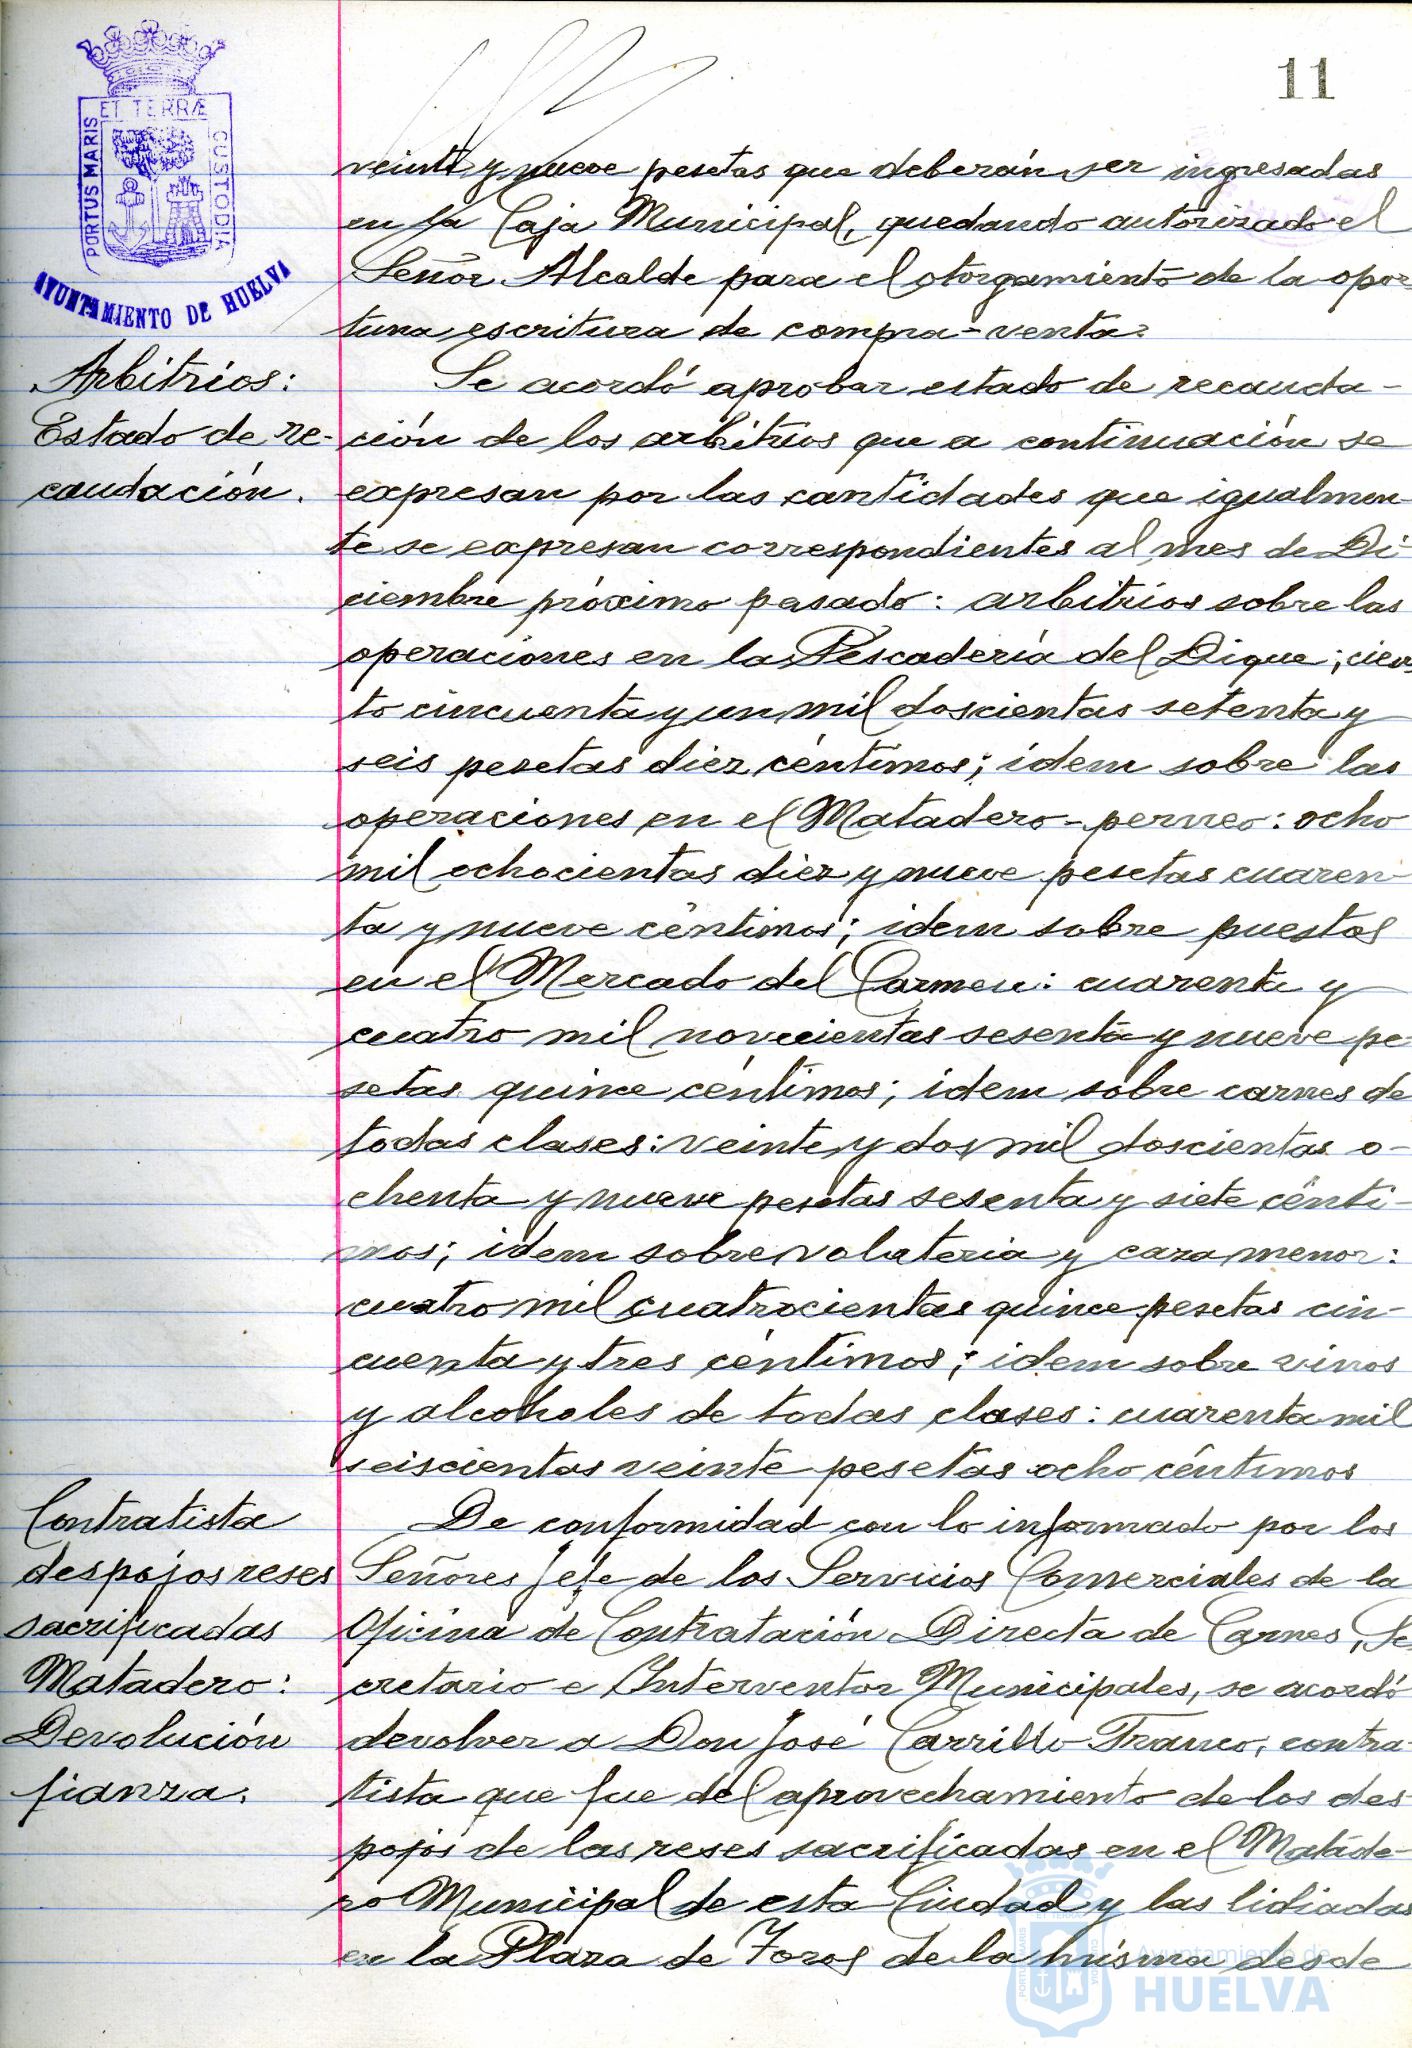 11
ET TERRÆ
PORTUS MARIS
CUSTODIA
AYUNTAMIENTO DE HUELVA
veinte y nueve pesetas que deberán ser ingresadas
en la Caja Municipal, quedando autorizado el
Señor Alcalde para el otorgamiento de la opor-
tuna escritura de compra-venta.
Arbitrios:
Estado de re-
caudación.
Se acordó aprobar estado de recauda-
ción de los arbitrios que a continuación se
expresan por las cantidades que igualmen-
te se expresan correspondientes al mes de Di-
ciembre próximo pasado: arbitrios sobre las
operaciones en la Pescadería del Dique; cien-
to cincuenta y un mil doscientas setenta y
seis pesetas diez céntimos; idem sobre las
operaciones en el Matadero-perneo: ocho
mil ochocientas diez y nueve pesetas cuaren-
ta y nueve céntimos; idem sobre puestos
en el Mercado del Carmen: cuarenta y
cuatro mil novecientas sesenta y nueve pe-
setas quince céntimos; idem sobre carnes de
todas clases: veinte y dos mil doscientas o-
chenta y nueve pesetas sesenta y siete cénti-
mos; idem sobre volateria y caza menor:
cuatro mil cuatrocientas quince pesetas cin-
cuenta y tres céntimos; idem sobre vinos
y alcoholes de todas clases: cuarenta mil
seiscientas veinte pesetas ocho céntimos
Contratista
despojos reses
sacrificadas
Matadero:
Devolución
fianza.
De conformidad con lo informado por los
Señores Jefe de los Servicios Comerciales de la
Oficina de Contratación Directa de Carnes, Se-
cretario e Interventor Municipales, se acordó
devolver a Don José Carrillo Franco, contra-
tista que fue del aprovechamiento de los des-
pojos de las reses sacrificadas en el Matade-
ro Municipal de esta Ciudad y las lidiadas
en la Plaza de Toros de la misma desde
Ayuntamiento de
HUELVA